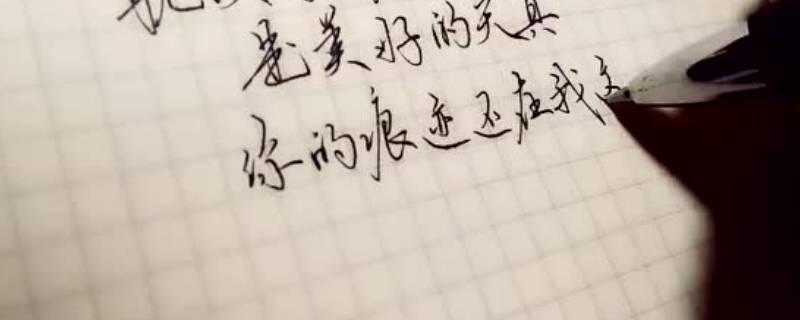 是美好的天真
你的痕迹还在我